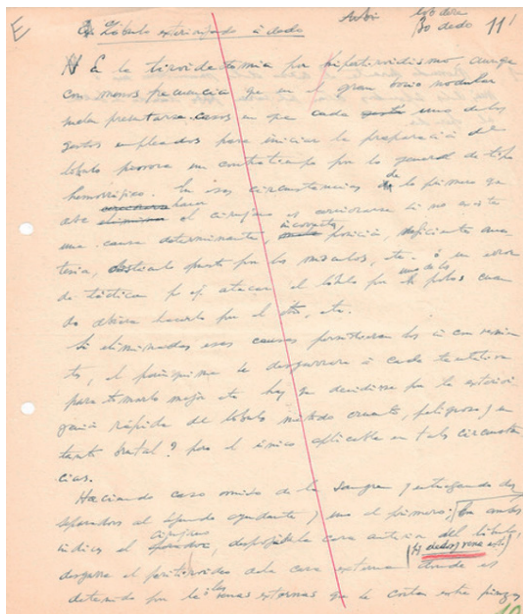 E
Lóbulo extirpado á dedo
11
En la tiroidectomia por hipertiroidismo, aunque
con menos frecuencia que en el gran bocio nodular
suelen presentarse casos en que cada uno de los
gestos empleados para iniciar la preparación del
lóbulo provoca un contratiempo por lo general de tipo
hemorrágico. En esas circunstancias lo primero que
debe hacer el cirujano es cerciorarse si no existe
una causa determinante, incorrecta posición, deficiente anes
tesia, por los músculos, etc. ó un error
de táctica p. ej. atacar el lóbulo por uno de los polos cuan
do debiera hacerlo por el otro, etc.
Si eliminadas esas causas persistieran los inconvenien
tes, el parénquima se desgarrara á cada tentativa
para tomarlo mejor etc hay que decidirse por la exterio
rización rápida del lóbulo método cruento, peligroso y un
tanto brutal? pero el único aplicable en tales circunstan
cias.
Haciendo caso omiso de la sangre y entregando dos
separadores al segundo ayudante y uno al primero, con ambos
índices el cirujano, despega la cara anterior del lóbulo,
desgarra el peritiroideo de la cara externa donde es
detenido por las venas externas que la corta entre pinzas